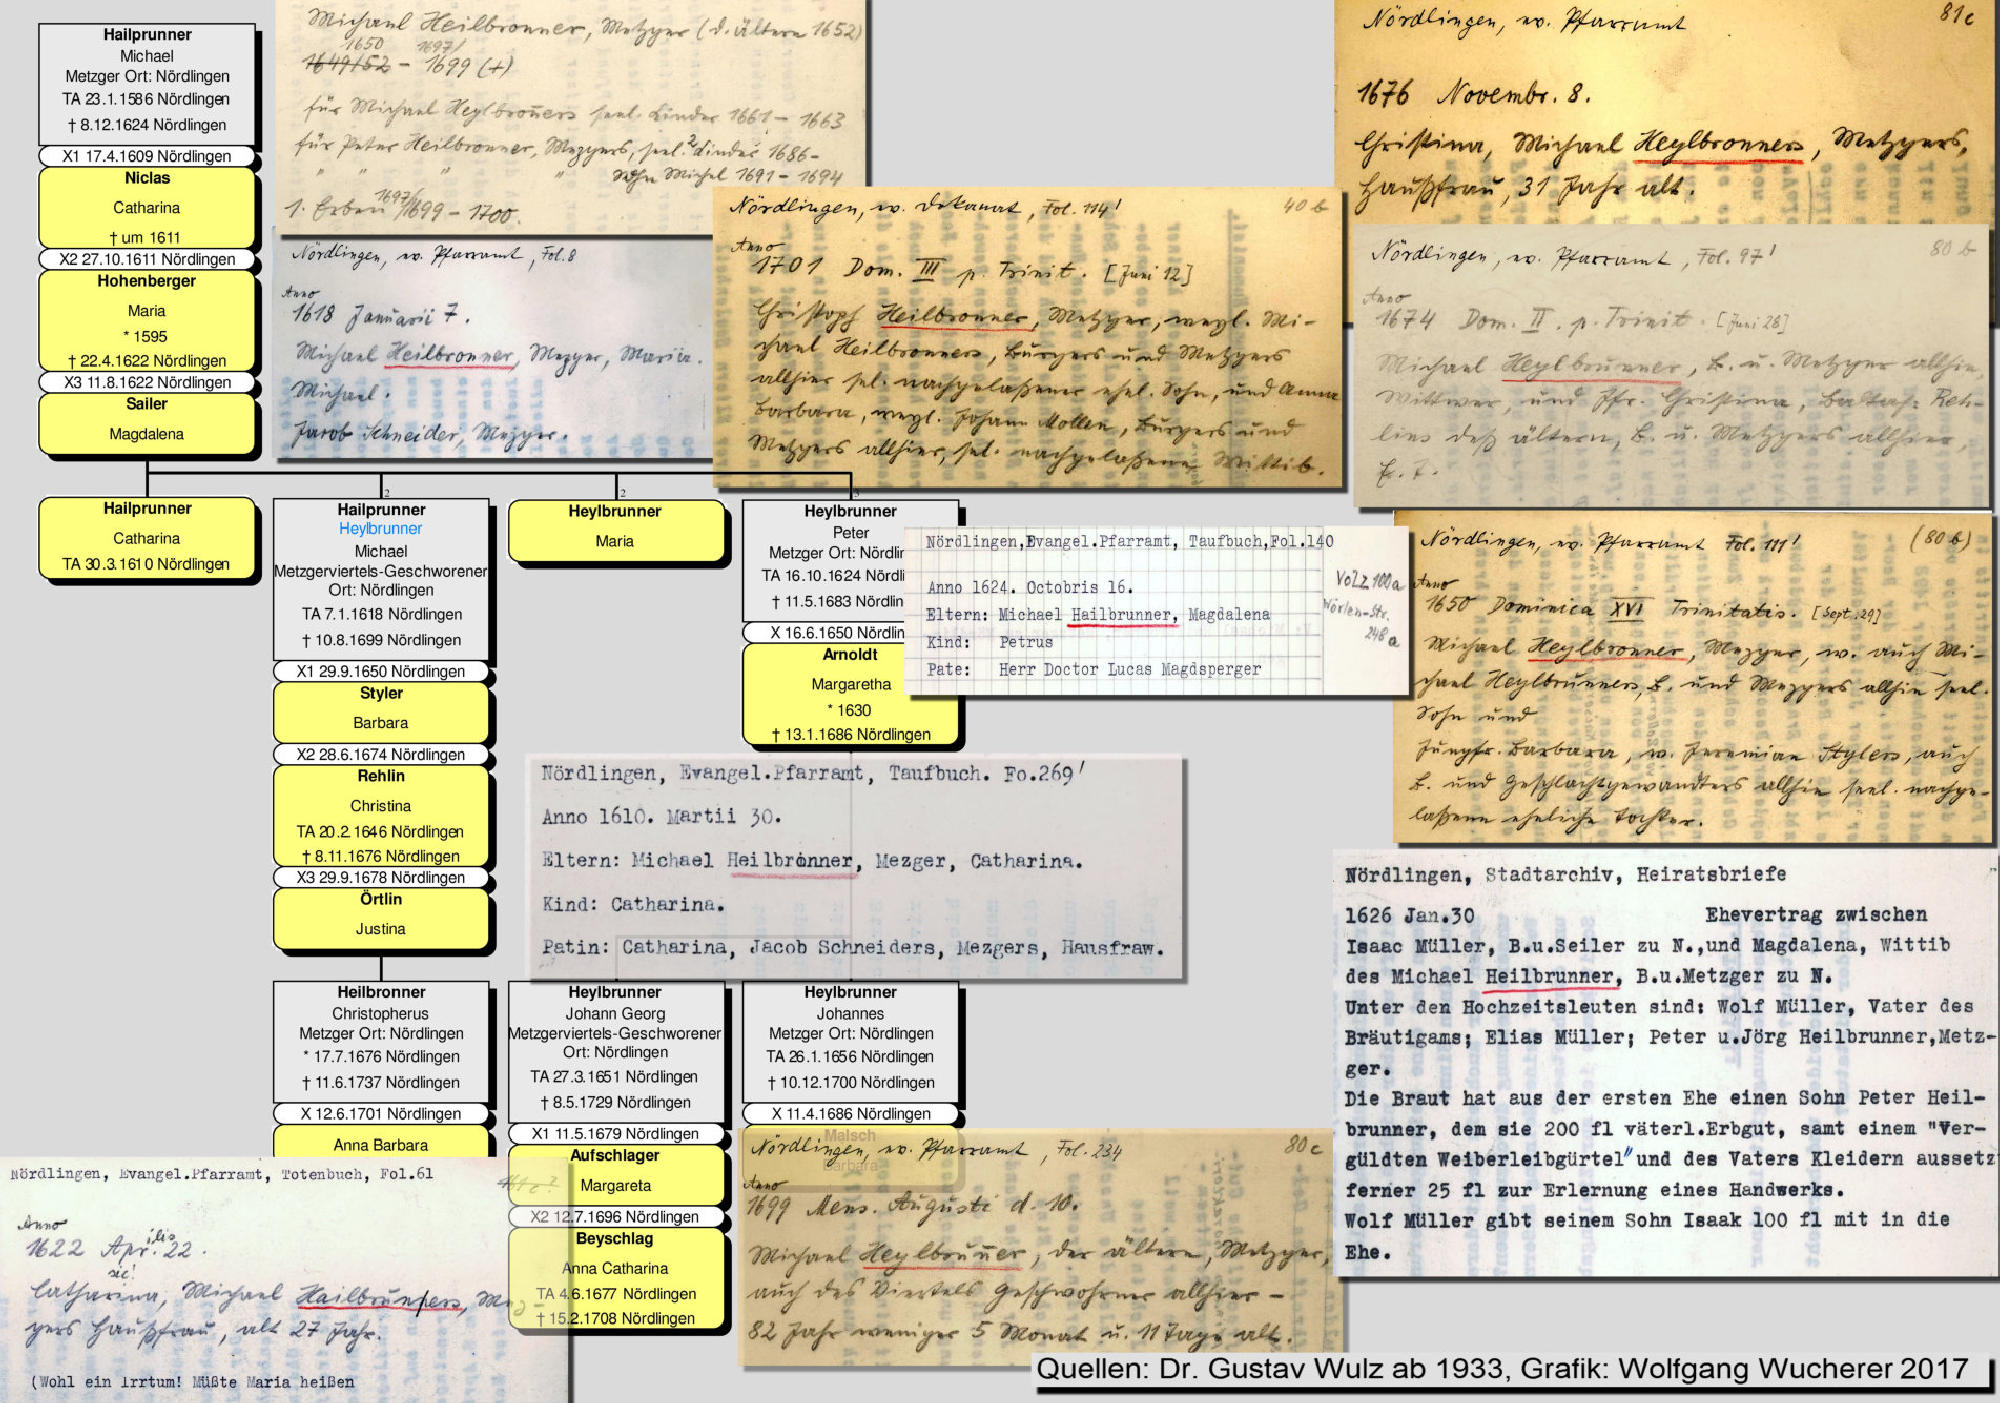 Hailprunner
Michael
Metzger Ort: Nördlingen
TA 23.1.1586 Nördlingen
† 8.12.1624 Nördlingen
X1 17.4.1609 Nördlingen
Niclas
Catharina
† um 1611
X2 27.10.1611 Nördlingen
Hohenberger
Maria
* 1595
† 22.4.1622 Nördlingen
X3 11.8.1622 Nördlingen
Sailer
Magdalena
Michael Heilbronner, Metzger (d. ältere 1652)
1650 1697/
1649/52 - 1699 (+)
für Michael Heylbroners seel. Kinder 1661 - 1663
für Peter Heilbronner, Mezgers, seel. 2 Kinder 1686-
" " " " Sohn Michel 1691 - 1694
1. Erben 1697/1699 - 1700.
Nördlingen, ev. Pfarramt, Fol. 8
Anno
1618 Januarii 7.
Michael Heilbronner, Mezger, Maria.
Michael.
Jacob Schneider, Mezger.
Nördlingen, ev. Dekanat, Fol. 114' 40 b
Anno
1701 Dom. III p. Trinit. [Juni 12]
Christoph Heilbronner, Metzger, weyl. Mi-
chael Heilbronners, Burgers und Metzgers
allhier sel. nachgelaßener ehel. Sohn, und Anna
Barbara, weyl. Johann Mollen, Burgers und
Metzgers allhier, sel. nachgelaßene Wittib.
Nördlingen, ev. Pfarramt 81c
1676 Novembr. 8.
Christina, Michael Heylbronners, Metzgers,
Haußfrau, 31 Jahr alt.
Nördlingen, ev. Pfarramt, Fol. 97' 80 b
Anno
1674 Dom. II. p. Trinit. [Juni 28]
Michael Heylbrunner, B. u. Metzger allhie,
Wittwer, und Jfr. Christina, Baltas: Reh-
lins deß ältern, B. u. Metzgers allhier,
E. T.
Hailprunner
Catharina
TA 30.3.1610 Nördlingen
2
Hailprunner
Heylbrunner
Michael
Metzgerviertels-Geschworener
Ort: Nördlingen
TA 7.1.1618 Nördlingen
† 10.8.1699 Nördlingen
X1 29.9.1650 Nördlingen
Styler
Barbara
X2 28.6.1674 Nördlingen
Rehlin
Christina
TA 20.2.1646 Nördlingen
† 8.11.1676 Nördlingen
X3 29.9.1678 Nördlingen
Örtlin
Justina
2
Heylbrunner
Maria
3
Heylbrunner
Peter
Metzger Ort: Nördlin
TA 16.10.1624 Nördli
† 11.5.1683 Nördlin
X 16.6.1650 Nördlin
Arnoldt
Margaretha
* 1630
† 13.1.1686 Nördlingen
Nördlingen,Evangel.Pfarramt, Taufbuch,Fol.140
Anno 1624. Octobris 16.
Eltern: Michael Hailbrunner, Magdalena
Kind: Petrus
Pate: Herr Doctor Lucas Magdsperger
Volz 100a
Wörlen-Str.
248a
Nördlingen, ev. Pfarramt Fol. 111' (80 b)
Anno
1650 Dominica XVI Trinitatis. [Sept. 29]
Michael Heylbronner, Mezger, w. auch Mi-
chael Heylbrunners, B. und Mezgers allhie seel.
Sohn und
Jungfr. Barbara, w. Jeremiae Stylers, auch
B. und Geschlachtgewandters allhie seel. nachge-
laßene eheliche Tochter.
Nördlingen, Evangel.Pfarramt, Taufbuch. Fo.269'
Anno 1610. Martii 30.
Eltern: Michael Heilbronner, Mezger, Catharina.
Kind: Catharina.
Patin: Catharina, Jacob Schneiders, Mezgers, Hausfraw.
Nördlingen, Stadtarchiv, Heiratsbriefe
1626 Jan.30 Ehevertrag zwischen
Isaac Müller, B.u.Seiler zu N.,und Magdalena, Wittib
des Michael Heilbrunner, B.u.Metzger zu N.
Unter den Hochzeitsleuten sind: Wolf Müller, Vater des
Bräutigams; Elias Müller; Peter u.Jörg Heilbrunner,Metz-
ger.
Die Braut hat aus der ersten Ehe einen Sohn Peter Heil-
brunner, dem sie 200 fl väterl.Erbgut, samt einem "Ver-
güldten Weiberleibgürtel" und des Vaters Kleidern aussetz
ferner 25 fl zur Erlernung eines Handwerks.
Wolf Müller gibt seinem Sohn Isaak 100 fl mit in die
Ehe.
Heilbronner
Christopherus
Metzger Ort: Nördlingen
* 17.7.1676 Nördlingen
† 11.6.1737 Nördlingen
X 12.6.1701 Nördlingen
Anna Barbara
Heylbrunner
Johann Georg
Metzgerviertels-Geschworener
Ort: Nördlingen
TA 27.3.1651 Nördlingen
† 8.5.1729 Nördlingen
X1 11.5.1679 Nördlingen
Aufschlager
Margareta
X2 12.7.1696 Nördlingen
Beyschlag
Anna Catharina
TA 4.6.1677 Nördlingen
† 15.2.1708 Nördlingen
Heylbrunner
Johannes
Metzger Ort: Nördlingen
TA 26.1.1656 Nördlingen
† 10.12.1700 Nördlingen
X 11.4.1686 Nördlingen
Malsch
Barbara
Nördlingen, Evangel.Pfarramt, Totenbuch, Fol.61
Anno
1622 Aprilis 22.
sic!
Catharina, Michael Hailbrunners, Mez-
gers Haußfrau, alt 27 Jahr.
(Wohl ein Irrtum! Müßte Maria heißen
Nördlingen, ev. Pfarramt, Fol. 234 80 c
Anno
1699 Mens. Augusti d. 10.
Michael Heylbrunner, der ältere, Metzger,
auch des Viertels Geschwohrner allhier -
82 Jahr weniger 5 Monat u. 11 Tage alt.
Quellen: Dr. Gustav Wulz ab 1933, Grafik: Wolfgang Wucherer 2017